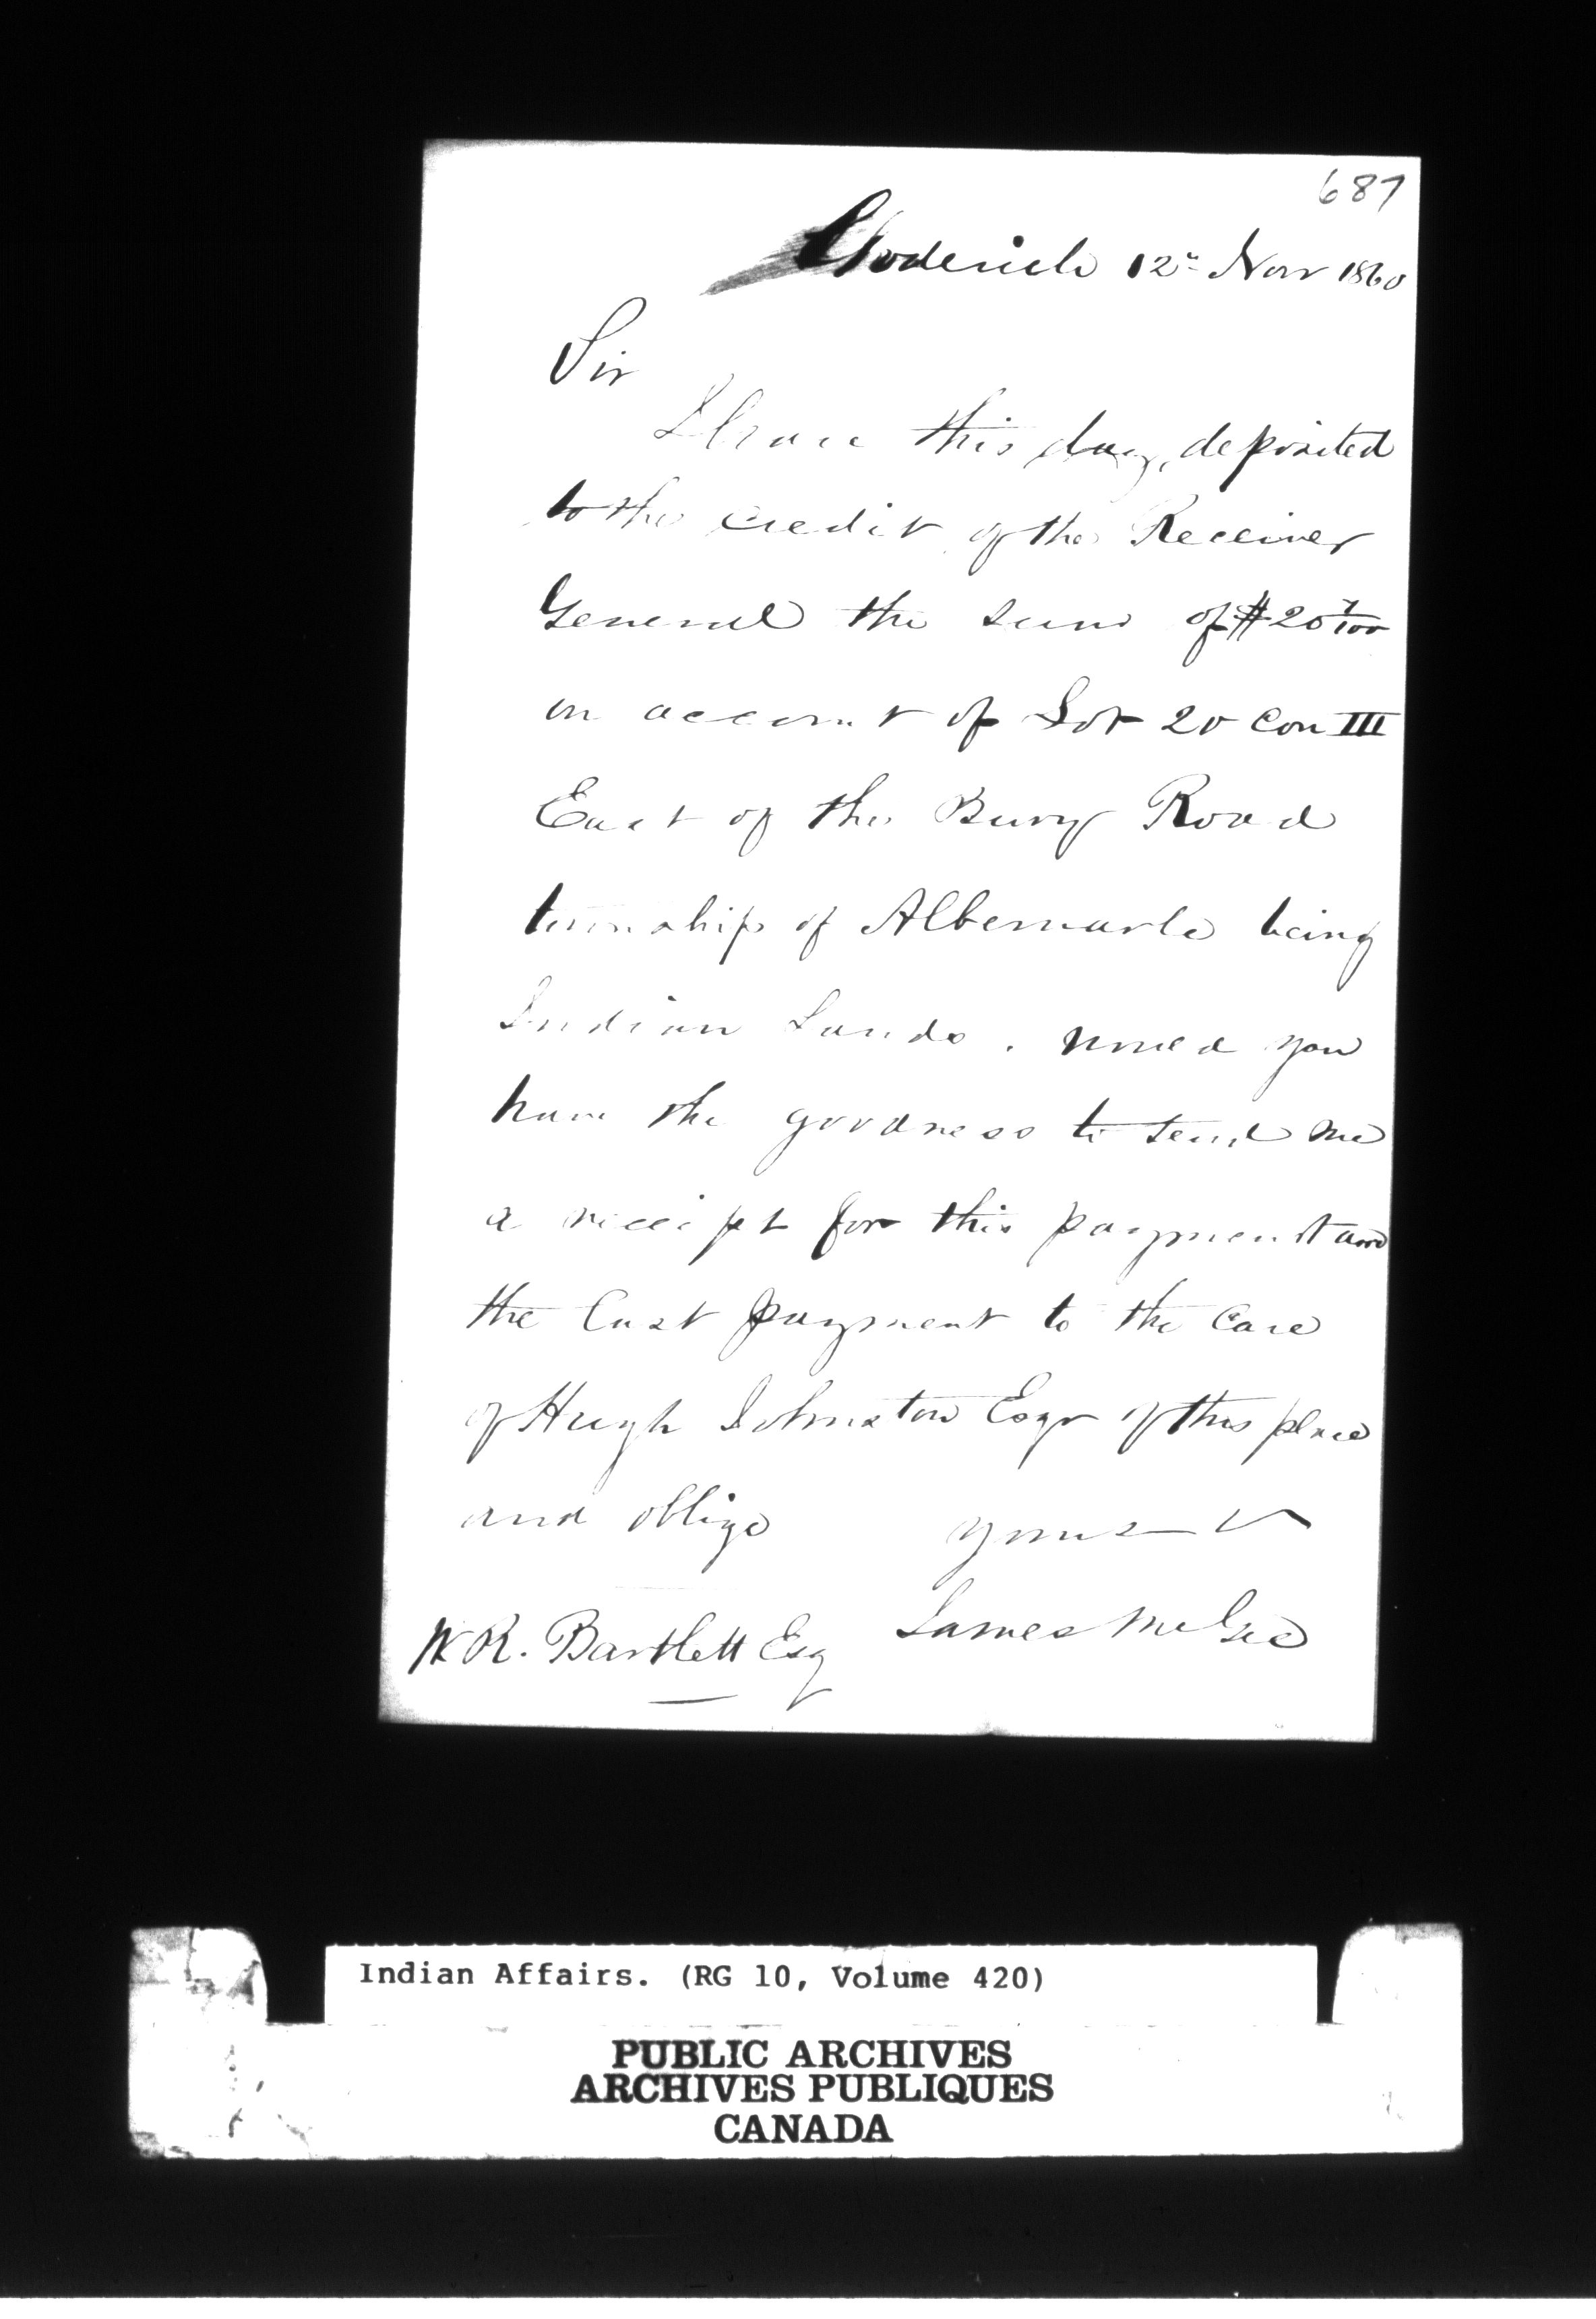 687
Goderich 12" Nov 1860
Sir
I have this day, deposited
to the credit of the Receiver
General the sum of $20 x/100
on account of Lot 20 Con III
East of the Bury Road
township of Albemarle being
Indian Lands. would you
have the goodness to send me
a receipt for this payment and
the last payment to the care
of Hugh Johnston Esqr of this place
and oblige yours
W R. Bartlett Esq James McGee
Indian Affairs. (RG 10, Volume 420)
PUBLIC ARCHIVES
ARCHIVES PUBLIQUES
CANADA